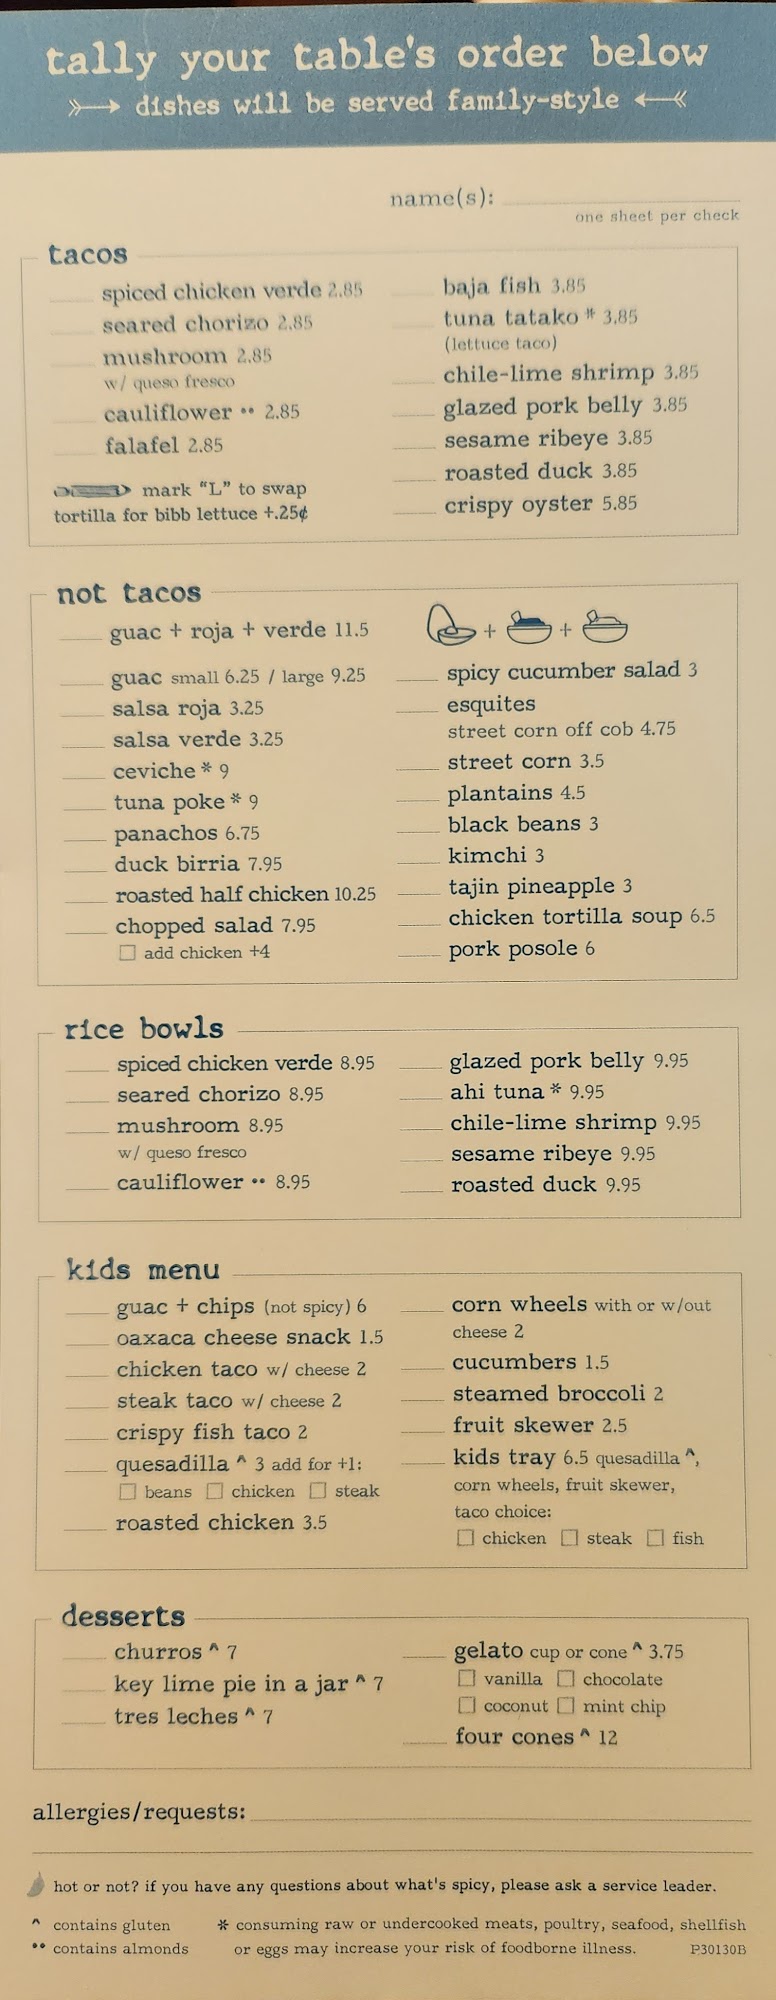 tally your table's order below
dishes will be served family-style
name(s):
one sheet per check
tacos
spiced chicken verde 2.85
seared chorizo 2.85
mushroom 2.85
w/ queso fresco
cauliflower •• 2.85
falafel 2.85
mark “L” to swap
tortilla for bibb lettuce +.25¢
baja fish 3.85
tuna tatako * 3.85
(lettuce taco)
chile-lime shrimp 3.85
glazed pork belly 3.85
sesame ribeye 3.85
roasted duck 3.85
crispy oyster 5.85
not tacos
guac + roja + verde 11.5
+ +
guac small 6.25 / large 9.25
salsa roja 3.25
salsa verde 3.25
ceviche * 9
tuna poke * 9
panachos 6.75
duck birria 7.95
roasted half chicken 10.25
chopped salad 7.95
☐ add chicken +4
spicy cucumber salad 3
esquites
street corn off cob 4.75
street corn 3.5
plantains 4.5
black beans 3
kimchi 3
tajin pineapple 3
chicken tortilla soup 6.5
pork posole 6
rice bowls
spiced chicken verde 8.95
seared chorizo 8.95
mushroom 8.95
w/ queso fresco
cauliflower •• 8.95
glazed pork belly 9.95
ahi tuna * 9.95
chile-lime shrimp 9.95
sesame ribeye 9.95
roasted duck 9.95
kids menu
guac + chips (not spicy) 6
oaxaca cheese snack 1.5
chicken taco w/ cheese 2
steak taco w/ cheese 2
crispy fish taco 2
quesadilla ^ 3 add for +1:
☐ beans ☐ chicken ☐ steak
roasted chicken 3.5
corn wheels with or w/out
cheese 2
cucumbers 1.5
steamed broccoli 2
fruit skewer 2.5
kids tray 6.5 quesadilla ^,
corn wheels, fruit skewer,
taco choice:
☐ chicken ☐ steak ☐ fish
desserts
churros ^ 7
key lime pie in a jar ^ 7
tres leches ^ 7
gelato cup or cone ^ 3.75
☐ vanilla ☐ chocolate
☐ coconut ☐ mint chip
four cones ^ 12
allergies/requests:
hot or not? if you have any questions about what's spicy, please ask a service leader.
^ contains gluten
•• contains almonds
* consuming raw or undercooked meats, poultry, seafood, shellfish
or eggs may increase your risk of foodborne illness.
P30130B